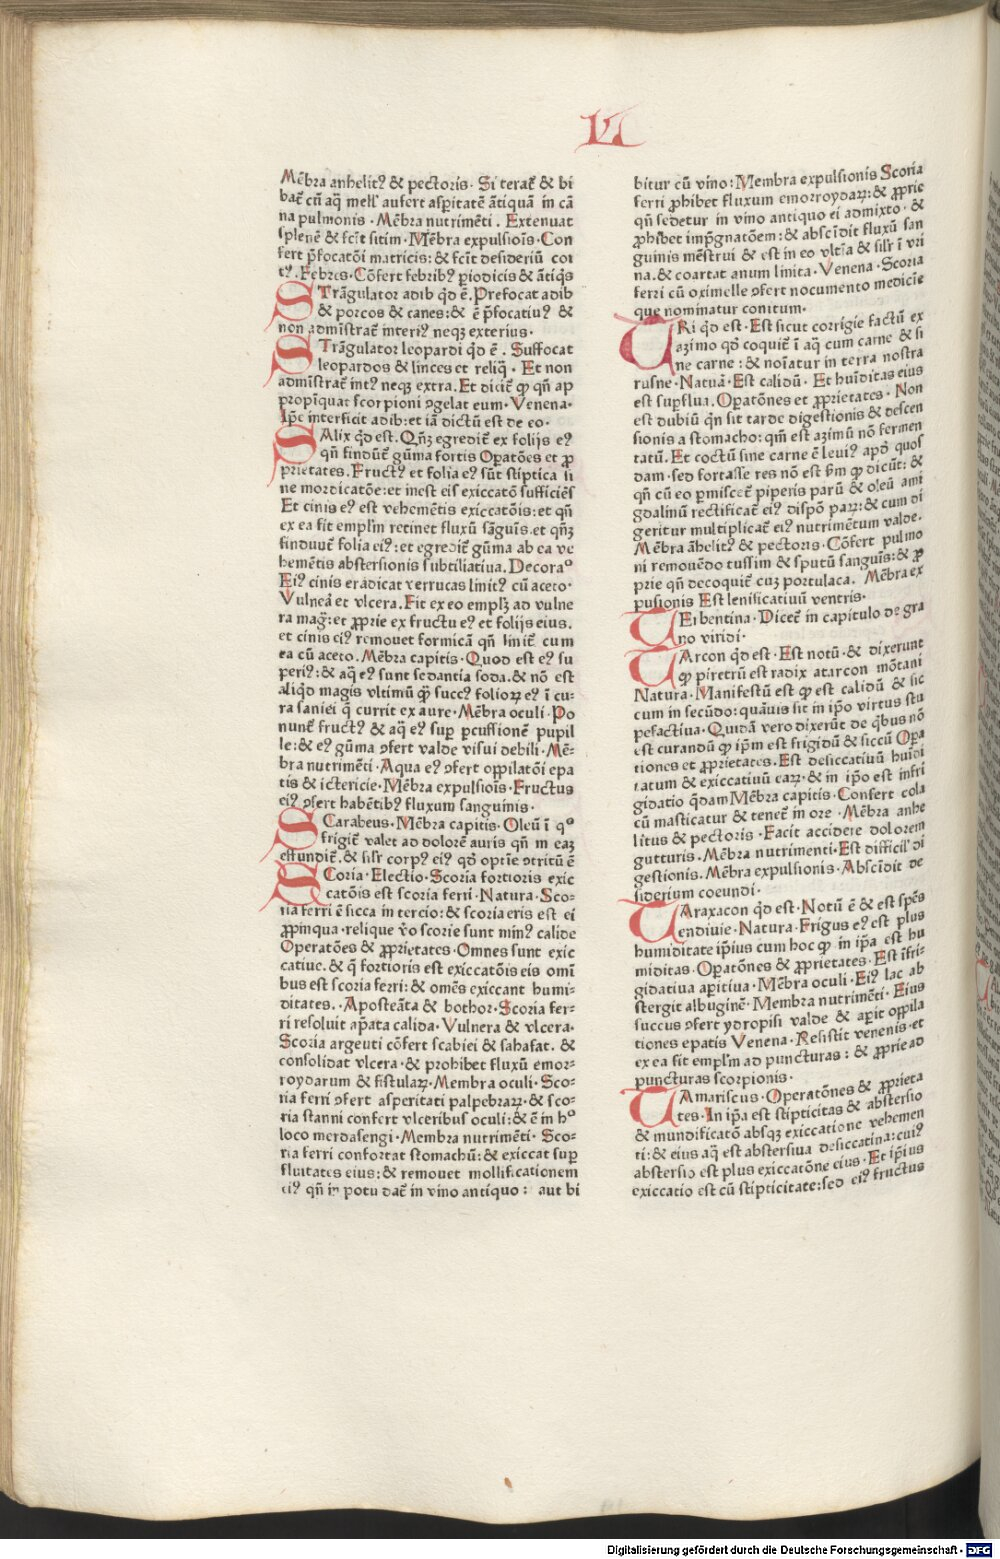 VI
Mẽbra anhelitꝰ & pectoris. Si terat̃ & bi
bat̃ cũ aq̃ mell' aufert asꝑitatẽ ãtiquã in cã
na pulmonis. Mẽbra nutrimẽti. Extenuat
splenẽ & fcĩt sitim. Mẽbra expulsiõis. Con
fert p̃focatõi matricis: & fcĩt desideriũ coi
tꝰ. Febres. Cõfert febribꝰ ꝑiodicis & ãtiq̃s
STrãgulator adib qd̃ ẽ. Prefocat adib
& porcos & canes: & ẽ p̃focatiuꝰ &
non admĩstrat̃ interiꝰ neqꝫ exterius.
STrãgulator leopardi qd̃ ẽ. Suffocat
leopardos & linces et reliq̃. Et non
admĩstrat̃ intꝰ neqꝫ extra. Et dicit̃ ꝙ qñ ap
propĩquat scorpioni ꝯgelat eum. Venena.
Ip̃e interficit adib: et iã dictũ est de eo.
SAlix qd̃ est. Qñꝫ egredit̃ ex folijs eꝰ
qñ findũt̃ gũma fortis Oꝑatões et ꝓ
prietates. Fructꝰ et folia eꝰ sũt stiptica si
ne mordicatõe: et inest eis exiccatõ sufficiẽs
Et cinis eꝰ est vehemẽtis exiccatõis: et qñ
ex ea fit emplm̃ retinet fluxũ sãguĩs. et qñꝫ
findũut̃ folia eiꝰ: et egredit̃ gũma ab ea ve
hemẽtis abstersionis subtiliatiua. Decora°
Eiꝰ cinis eradicat verrucas linitꝰ cũ aceto.
Vulnea᷑ et vlcera. Fit ex eo emplꝫ ad vulne
ra mag̃: et ꝓprie ex fructu eꝰ et folijs eius.
et cinis eiꝰ remouet formicã qñ linit̃ cum
ea cũ aceto. Mẽbra capitis. Quod est eꝰ su
periꝰ: & aq̃ eꝰ sunt sedantia soda. & nõ est
aliqd̃ magis vltimũ q̃ꝫ succꝰ folioꝝ eꝰ ĩ cu
ra saniei q̃ currit ex aure. Mẽbra oculi. Po
nunt̃ fructꝰ & aq̃ eꝰ suꝑ ꝑcussionẽ pupil
le: & eꝰ gũma ꝯfert valde visui debili. Mẽ
bra nutrimẽti. Aqua eꝰ ꝯfert oppilatõi epa
tis & ictericie. Mẽbra expulsiõis. Fructus
eiꝰ ꝯfert habẽtibꝰ fluxum sanguinis.
SCarabeus. Mẽbra capitis. Oleũ ĩ q°
frigit̃ valet ad dolorẽ auris qñ in eaꝫ
effundit̃. & silr̃ corpꝰ eiꝰ qd̃ optĩe ꝯtritũ ẽ
SCoria. Electio. Scoria fortioris exic
catõis est scoria ferri. Natura. Sco
ria ferri ẽ sicca in tercio: & scoria eris est ei
ꝓpinqua. relique ṽo scorie sunt minꝰ calide
Operatões & ꝓprietates. Omnes sunt exic
catiue. & q̃ fortioris est exiccatõis eis omĩ
bus est scoria ferri: & omẽs exiccant humi
ditates. Aposteãta & bothor. Scoria fer
ri resoluit ap̃ata calida. Vulnera & vlcera.
Scoria argenti cõfert scabiei & sahafat. &
consolidat vlcera. & prohibet fluxũ emor
roydarum & fistulaꝝ. Membra oculi. Sco
ria ferri ꝯfert asperitati palpebraꝝ. & sco
ria stanni confert vlceribus oculi: & ẽ in h°
loco merdasengi. Membra nutrimẽti. Sco
ria ferri confortat stomachũ: & exiccat suꝑ
fluitates eius: & remouet mollificationem
eiꝰ qñ in potu dat̃ in vino antiquo: aut bi
bitur cũ vino: Membra expulsionis Scoria
ferri ꝓhibet fluxum emorroydaꝝ: & ꝓprie
qñ sedetur in vino antiquo ei admixto. &
ꝓhibet imp̃gnatõem: & abscĩdit fluxũ san
guinis mẽstrui & est in eo vltĩa & silr̃ ĩ vri
na. & coartat anum linita. Venena. Scoria
ferri cũ oximelle ꝯfert nocumento medicĩe
que nominatur conitum.
TRi qd̃ est. Est sicut corrigie factũ ex
azimo qd̃ coquit̃ ĩ aq̃ cum carne & si
ne carne: & noĩatur in terra nostra
rusne. Natura᷑. Est calidũ. Et huĩditas eius
est suꝑflua. Oꝑatõnes et ꝓprietates. Non
est dubiũ qñ sit tarde digestionis & descen
sionis a stomacho: qm̃ est azimũ nõ fermen
tatũ. Et coctũ sine carne ẽ leuiꝰ apd̃ quos
dam. sed fortasse res nõ est sm̃ ꝙ dicũt: &
qñ cũ eo ꝑmiscet̃ piperis parũ & oleũ ami
gdalinũ rectificat̃ eiꝰ dispõ paꝝ: & cum di
geritur multiplicat̃ eiꝰ nutrimẽtum valde.
Mẽbra ãhelitꝰ & pectoris. Cõfert pulmo
ni remouẽdo tussim & sputũ sanguĩs: & ꝓ
prie qñ decoquit̃ cuꝫ portulaca. Mẽbra ex
pusionis Est lenificatiuũ ventris.
TErbentina. Dicet̃ in capitulo de gra
no viridi.
TArcon qd̃ est. Est notũ. & dixerunt
ꝙ piretrũ est radix atarcon mõtani
Natura. Manifestũ est ꝙ est calidũ & sic
cum in secũdo: quãuis sit in ip̃o virtus stu
pefactiua. Quidã vero dixerũt de qͥbus nõ
est curandũ ꝙ ip̃m est frigidũ & siccũ Oꝑa
tiones et ꝓprietates. Est desiccatiuũ huĩdi
tatum & exiccatiuũ eaꝝ. & in ip̃o est infri
gidatio q̃dam Mẽbra capitis. Confert cola
cũ masticatur & tenet̃ in ore. Mẽbra anhe
litus & pectoris. Facit accidere dolorem
gutturis. Mẽbra nutrimenti. Est difficil' di
gestionis. Mẽbra expulsionis. Abscĩdit de
siderium coeundi.
TAraxacon qd̃ est. Notũ ẽ & est sp̃es
endiuie. Natura. Frigus eꝰ est plus
humiditate ip̃ius cum hoc ꝙ in ip̃a est hu
miditas. Oꝑatõnes & ꝓprietates. Est ĩfri
gidatiua aꝑitiua. Mẽbra oculi. Eiꝰ lac ab
stergit albuginẽ. Membra nutrimẽti. Eius
succus ꝯfert ydropisi valde & aꝑit oppila
tiones epatis Venena. Resistit venenis. et
ex ea fit emplm̃ ad puncturas: & ꝓprie ad
puncturas scorpionis.
TAmariscus. Operatõnes & ꝓprieta
tes. In ip̃a est stipticitas & abstersio
& mundificatõ absqꝫ exiccatione vehemen
ti: & eius aq̃ est abstersiua desiccatiua: cuiꝰ
abstersio est plus exiccatõne eius. Et ip̃ius
exiccatio est cũ stipticitate: sed eiꝰ fructus
Digitalisierung gefördert durch die Deutsche Forschungsgemeinschaft - DFG